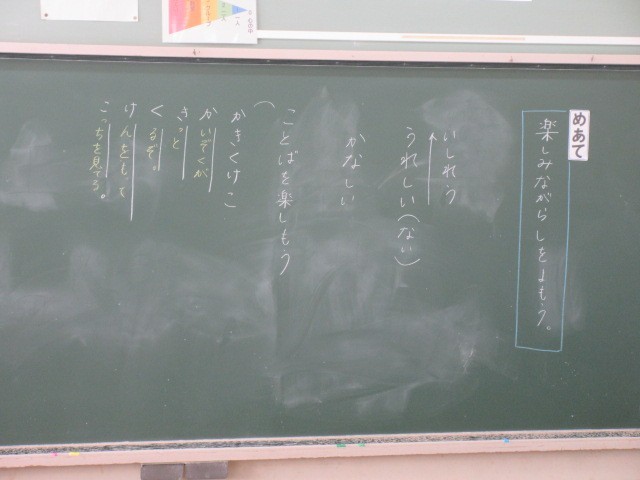 めあて
楽しみながらしをよもう。
いしれう
うれしい(ない)
かなしい
ことばを楽しもう
かきくけこ
かいぞくが
きっと
くるぞ。
けんをもって
こっちを見てる。